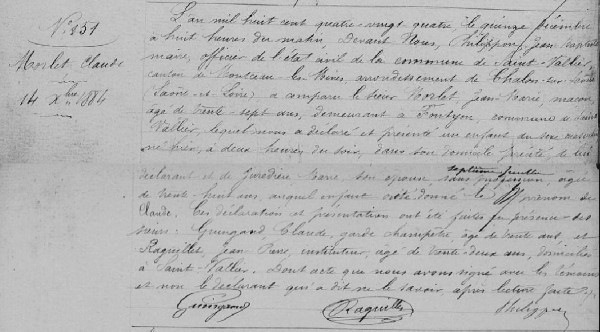 N° 151
Morlet Claude
14 Xbre 1884
L'an mil huit cent quatre-vingt quatre, le quinze décembre
à huit heures du matin, Devant Nous, Philippon, Jean Baptiste
maire, officier de l'état civil de la commune de Saint-Vallier,
canton de Montceau-les-Mines, arrondissement de Chalon-sur-Saône
(Saône-et-Loire) a comparu le sieur Morlet, Jean-Marie, maçon,
âgé de trente-sept ans, demeurant à commune de Saint
Vallier, lequel nous a déclaré et présenté un enfant du sexe masculin
né hier, à deux heures du soir, dans son domicile, de lui
déclarant et de son épouse septième famille sans profession, âgée
de trente-huit ans, auquel enfant a été donné le prénom de
Claude. Ces déclaration et présentation ont été faites en présence des
sieurs: Guingand, Claude, garde champêtre, âgé de trente ans, et
Raquillet, Jean Pierre, instituteur, âgé de trente-deux ans, domiciliés
à Saint-Vallier. Dont acte que nous avons signé avec les témoins
et non le déclarant qui a dit ne le savoir, après lecture faite.
Guingand Raquillet Philippon